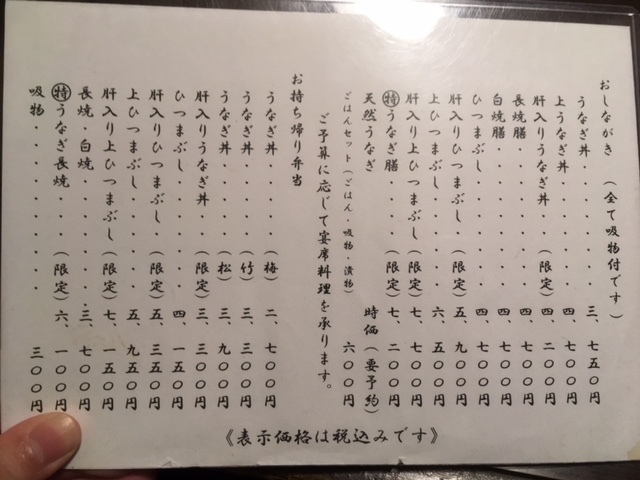 おしながき （全て吸物付です）
うなぎ丼・・・・・・・三、七五〇円
上うなぎ丼・・・・・・四、七〇〇円
肝入りうなぎ丼・・（限定）四、二〇〇円
長焼膳・・・・・・・四、七〇〇円
白焼膳・・・・・・・四、七〇〇円
ひつまぶし・・・・・・四、七〇〇円
肝入りひつまぶし・（限定）五、九〇〇円
上ひつまぶし・・・・・六、五〇〇円
肝入り上ひつまぶし（限定）七、七〇〇円
㊕うなぎ膳・・・・（限定）七、二〇〇円
天然うなぎ 時価（要予約）
ごはんセット（ごはん・吸物・漬物） 六〇〇円
ご予算に応じて宴席料理を承ります。
お持ち帰り弁当
うなぎ丼・・・・・（梅）二、七〇〇円
うなぎ丼・・・・・（竹）三、三〇〇円
うなぎ丼・・・・・（松）三、九〇〇円
肝入りうなぎ丼・・（限定）三、三〇〇円
ひつまぶし・・・・・・四、一五〇円
肝入りひつまぶし・（限定）五、三五〇円
上ひつまぶし・・・・・五、九五〇円
肝入り上ひつまぶし（限定）七、一五〇円
長焼・白焼・・・・・・三、七〇〇円
㊕うなぎ長焼・・・（限定）六、一〇〇円
吸物・・・・・・・・・三〇〇円
《表示価格は税込みです》